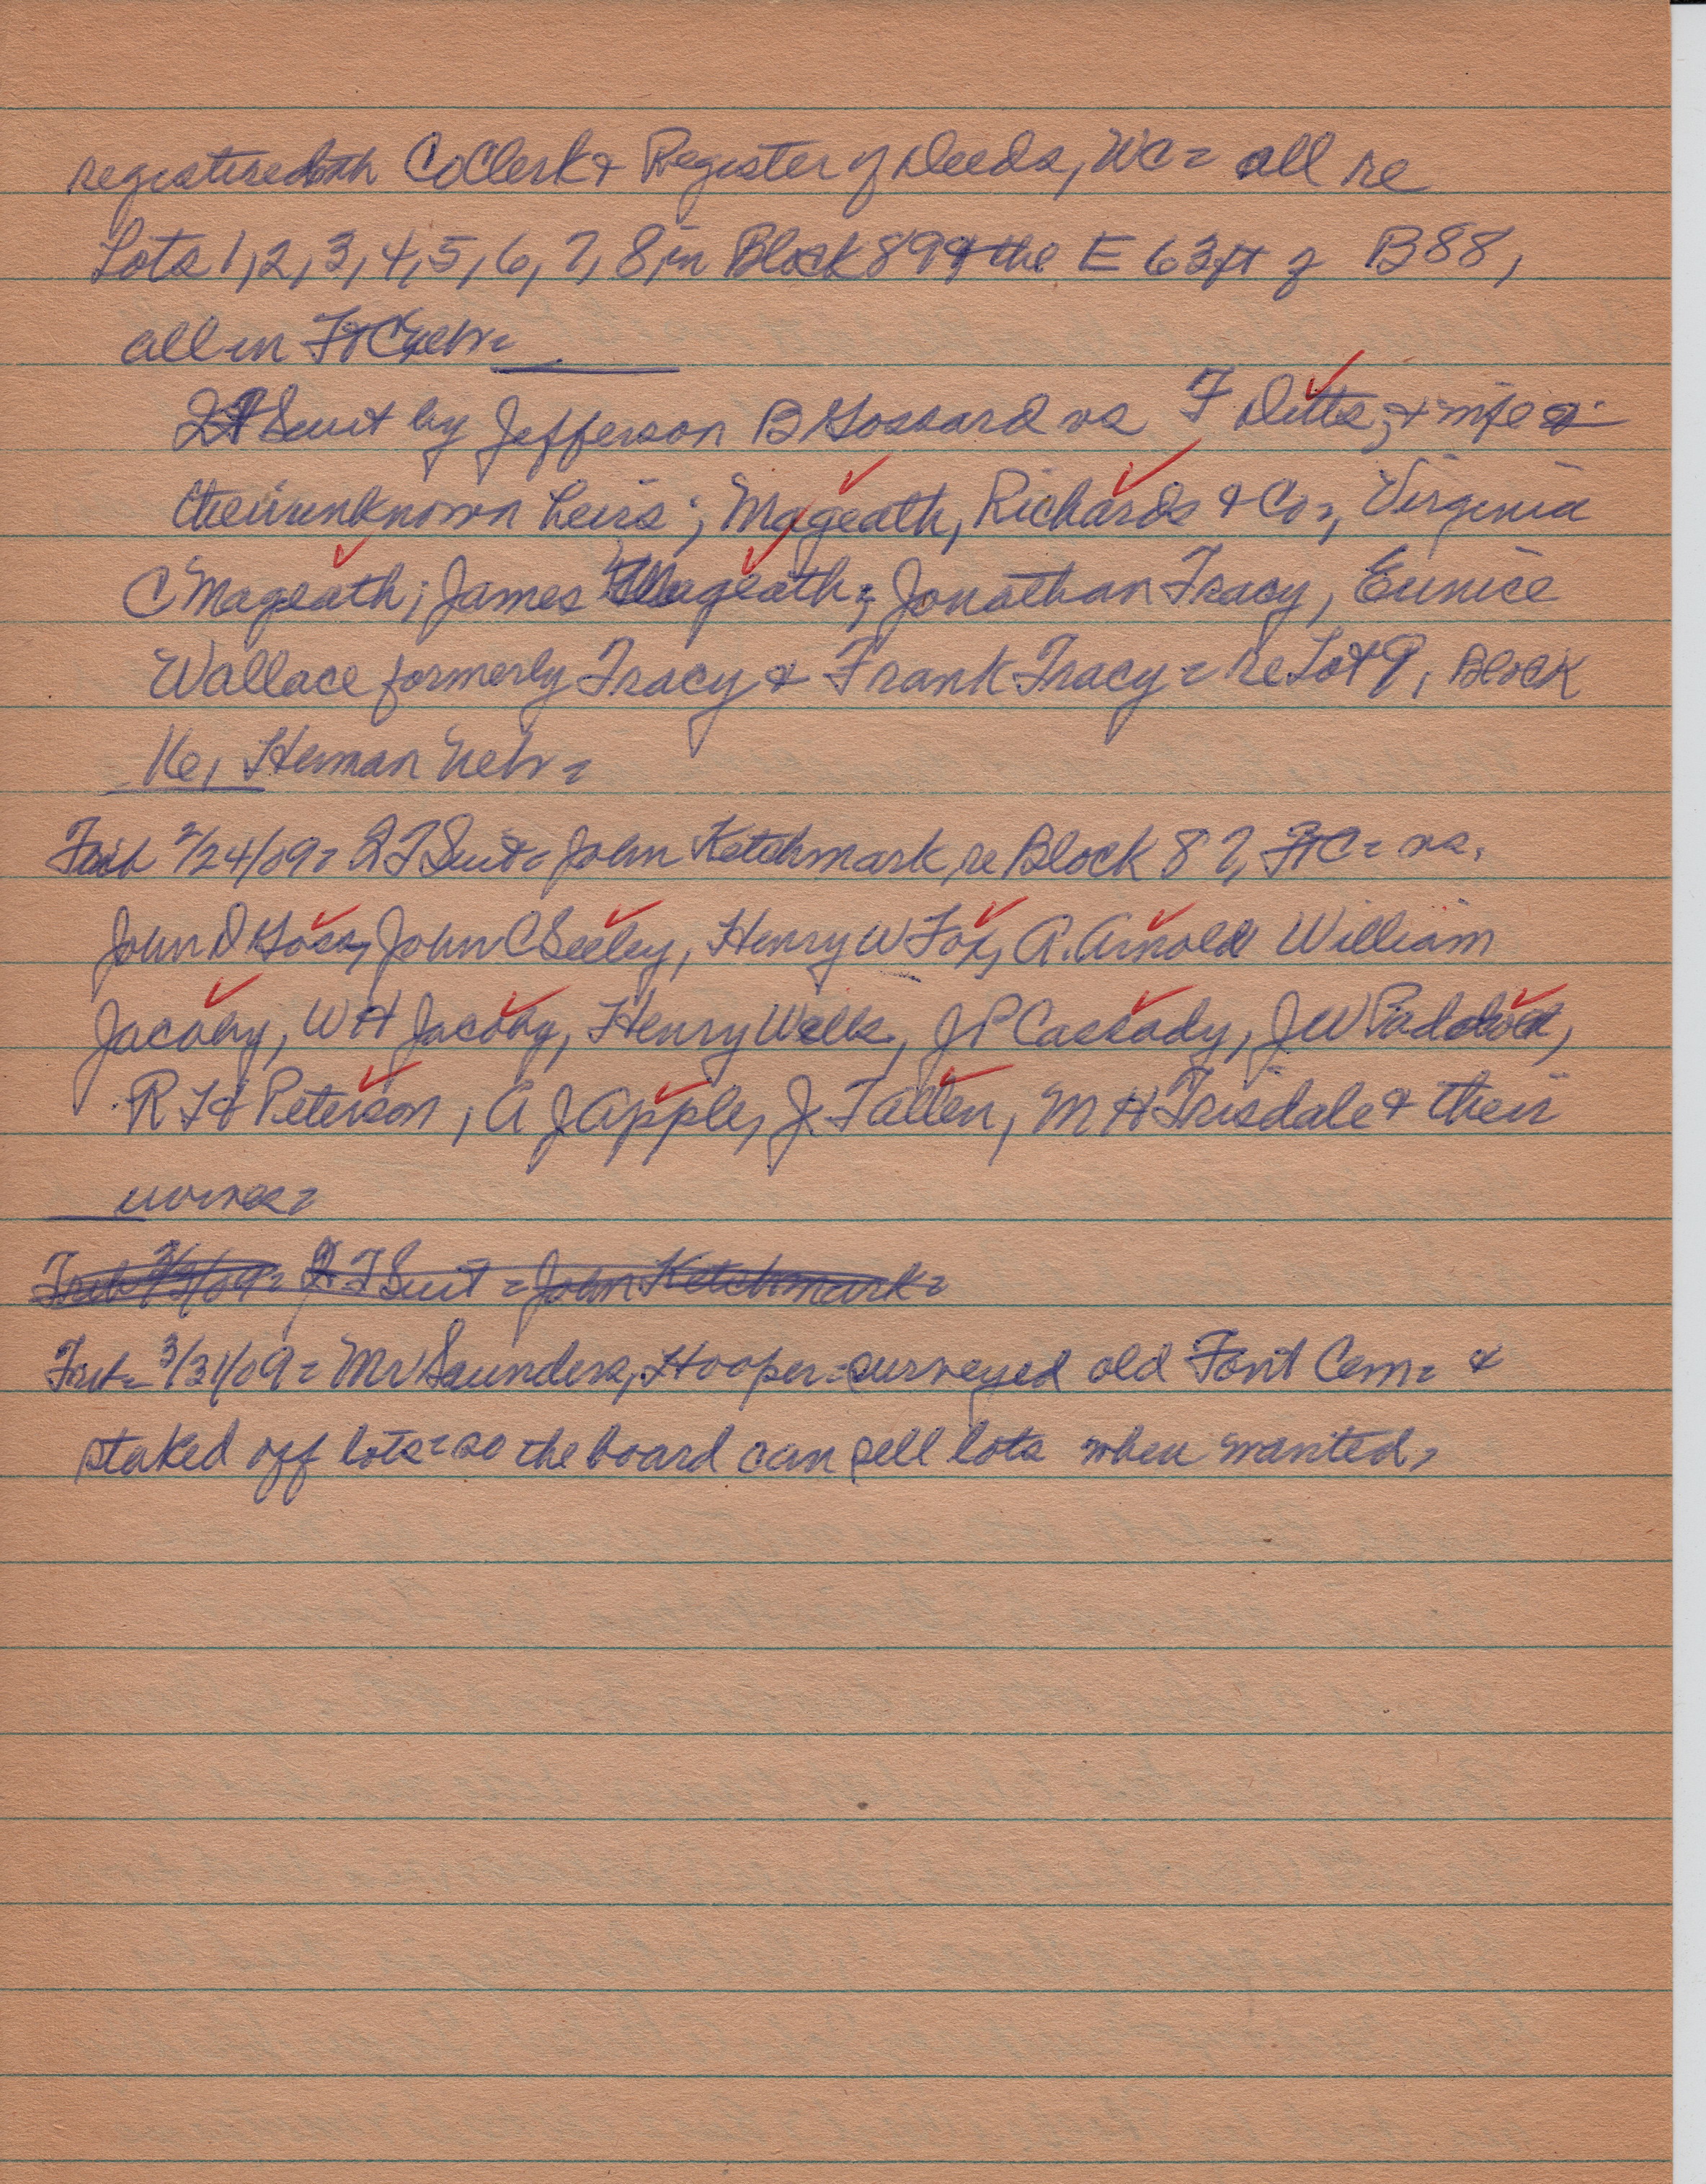 registered both CoClerk & Register of Deeds, WC = all re
Lots 1, 2, 3, 4, 5, 6, 7, 8, in Block 89 & the E 63 ft of B 88,
all in Ft C Nebr =
QT Suit by Jefferson B Gossard vs F Ditts, & wife &
their unknown heirs; Mageath, Richards & Co, Virginia
C Mageath; James Mageath; Jonathan Tracy, Eunice
Wallace formerly Tracy & Frank Tracy = re Lot 9, Block
16, Herman Nebr =
Trib 2/24/09 = QT Suit = John Ketchmark, re Block 87, Ft C = vs.
John D Goss, John C Seeley, Henry W Fox, A. Arnold William
Jacoby, W H Jacoby, Henry Wells, J P Cassady, J W Paddock,
R H Peterson, A J Apple, J. T Allen, M H Trisdale & their
wives =
QT Suit = John Ketchmark =
Trib = 3/31/09 = Mr Saunders, Hooper = surveyed old Font Cem = &
staked off lots = so the board can sell lots when wanted,